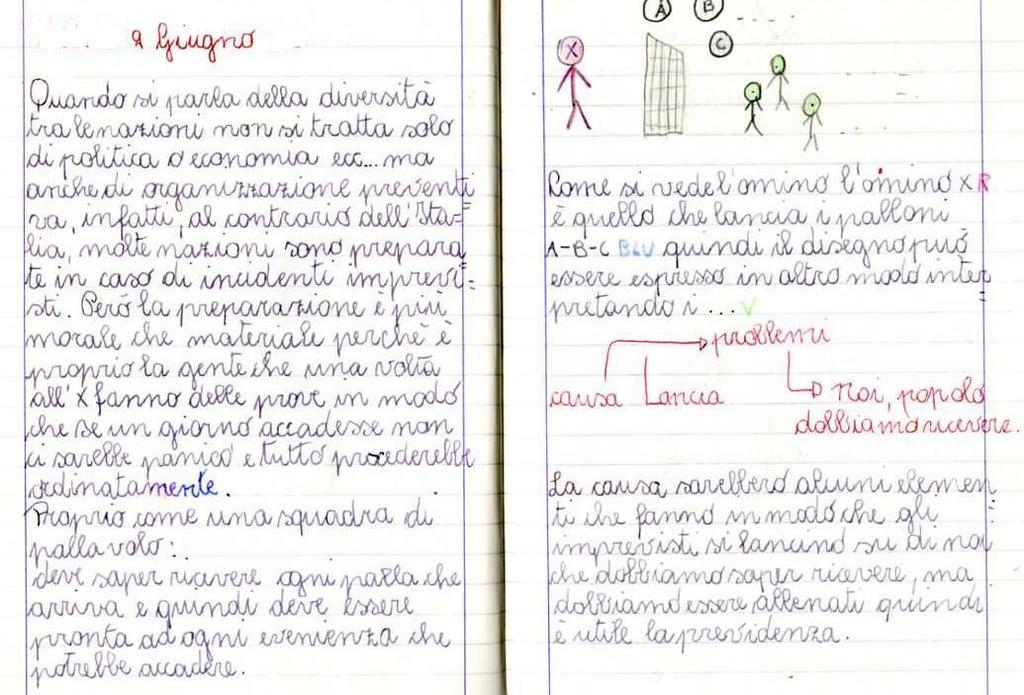 9 Giugno
Quando si parla della diversità
tra le nazioni non si tratta solo
di politica o economia ecc... ma
anche di organizzazione preventi
va, infatti, al contrario dell'Ita=
lia, molte nazioni sono prepara
te in caso di incidenti imprevi=
sti. Però la preparazione è più
morale che materiale perchè è
proprio la gente che una volta
all'X fanno delle prove in modo
che se un giorno accadesse non
ci sarebbe panico e tutto procederebbe
ordinatamente.
Proprio come una squadra di
pallavolo:
deve saper ricevere ogni palla che
arriva e quindi deve essere
pronta ad ogni evenienza che
potrebbe accadere.
A B
C
X
Come si vede l'omino l'omino X R
è quello che lancia i palloni
A-B-C BLU quindi il disegno può
essere espresso in altro modo inter
pretando i ... V
problemi
causa Lancia Noi, popolo
dobbiamo ricevere.
La causa sarebbero alcuni elemen
ti che fanno in modo che gli
imprevisti si lancino su di noi
che dobbiamo saper ricevere, ma
dobbiamo essere allenati quindi
è utile la previdenza.